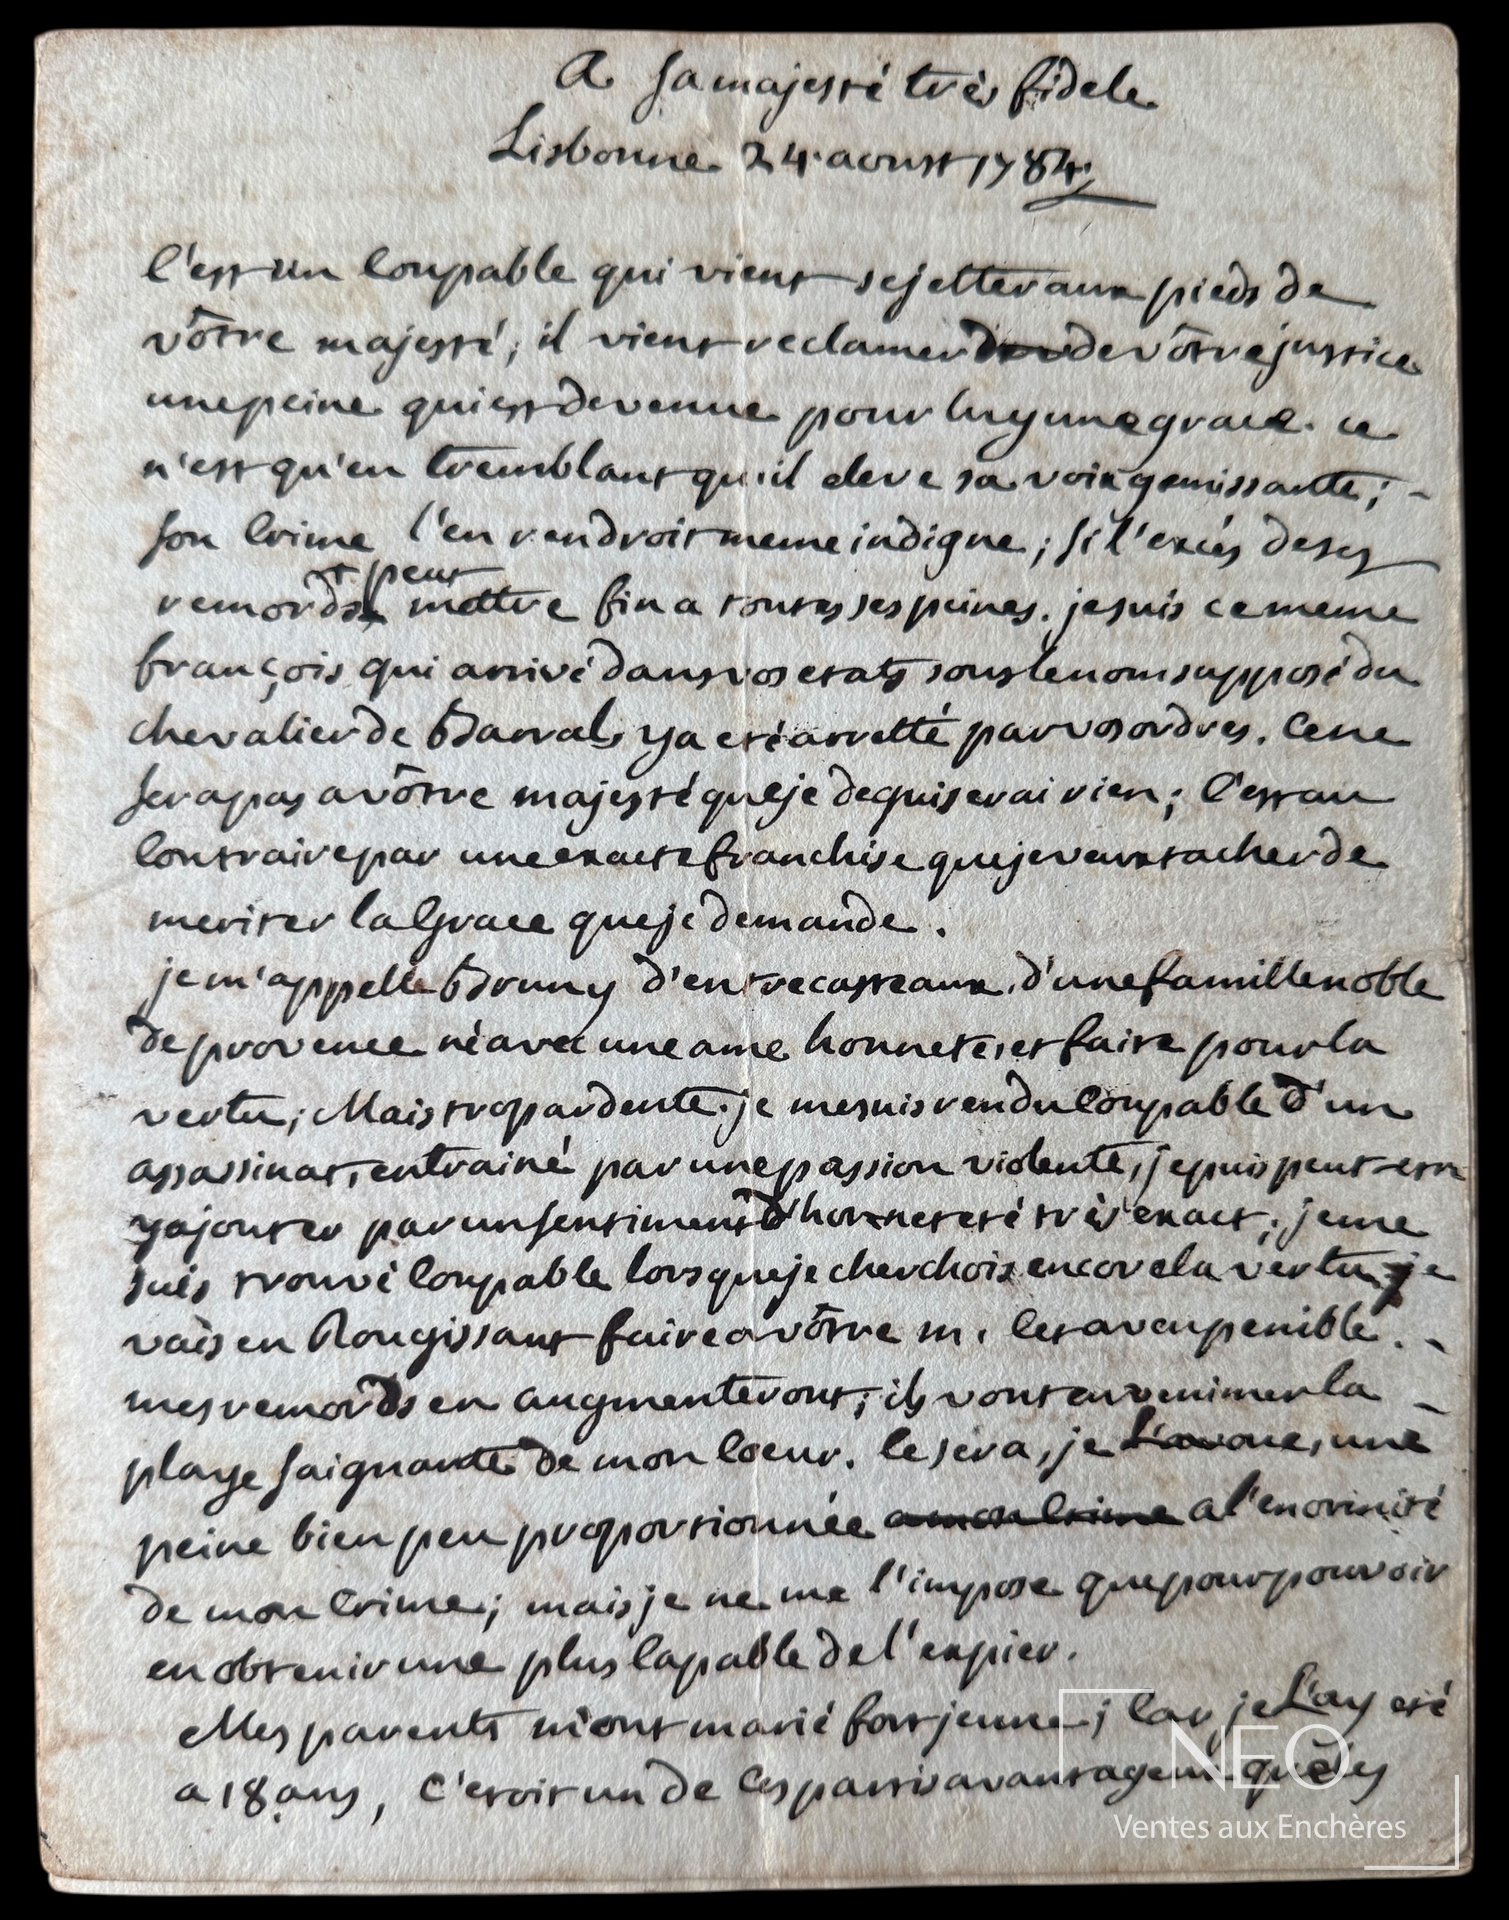 A sa majesté très fidele
Lisbonne 24 aoust 1784
C'est un Coupable qui vient se jetter aux pieds de
vôtre majesté; il vient reclamer de vôtre justice
une peine qui est devenue pour luy une grace. ce
n'est qu'en tremblant qu'il eleve sa voix gemissante;
son Crime l'en rendroit meme indigne; si l'excés de ses
remords peut mettre fin a toutes ses peines. je suis ce meme
françois qui arrivé dans vos etats sous le nom supposé du
chevalier de Barral, y a eté arretté par vos ordres. Ce ne
sera pas a vôtre majesté que je deguiserai rien; C'est au
Contraire par une exacte franchise que je veux tacher de
meriter la Grace que je demande.
je m'appelle Bruny d'entrecasteaux. d'une famille noble
de provence né avec une ame honnete, et faite pour la
vertu; Mais trop ardente. je me suis rendu Coupable d'un
assassinat, entrainé par une passion violente, je puis peut-etre
y ajouter par un sentiment d'honneteté très exact; je me
suis trouvé Coupable lorsque je cherchois encore la vertu je
vais en Rougissant faire a vôtre m. Cet aveu penible.
mes remords en augmenteront; ils vont envenimer la
playe saignante de mon Coeur. Ce sera, je L'avoue, une
peine bien peu proportionnée a mon Crime a l'enormité
de mon Crime; mais je ne me l'impose que pour pouvoir
en obtenir une plus Capable de l'expier.
Mes parents m'ont marié fort jeune; Car je L'ay eté
a 18 ans, C'etoit un de Ces partis avantageux que les
NEO
Ventes aux Enchères